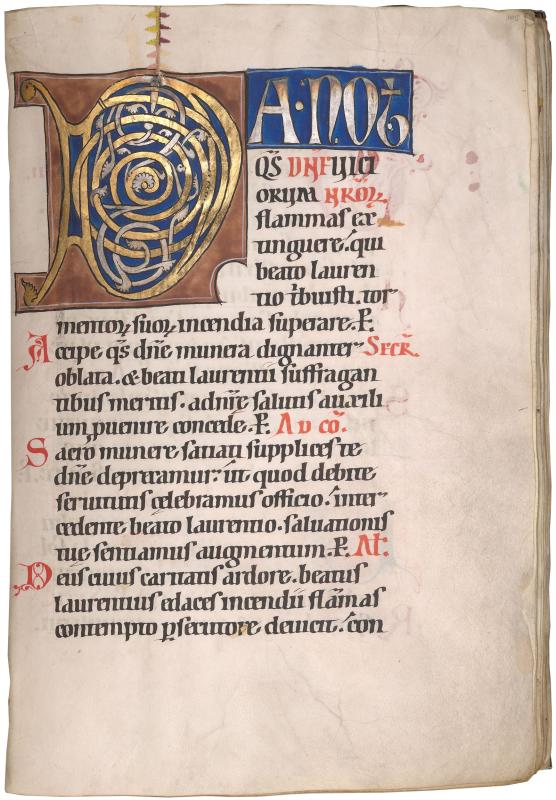 DA·NOƀ
QS̄ DN̄E UICI
ORUM NR̄OꝜ
flammas ex
tinguere. qui
beato lauren
tio t̄buisti. tor
mentoꝝ suoꝝ incendia superare. P̲.
Accipe qs̄ dn̄e munera dignanter Secr̄.
oblata. & beati laurentii suffragan
tibus meritis. ad nr̄e salutis auxili
um ꝑuenire concede. P̲. Ad cō.
Sacro munere satiati supplices te
dn̄e deprecamur. ut quod debite
seruitutis celebramus officio. inter
cedente beato laurentio. saluationis
tue sentiamus augmentum. P̲. Al̄.
Deus cuius caritatis ardore. beatus
laurentius edaces incendii flāmas
contempto ꝑsecutore deuicit. con